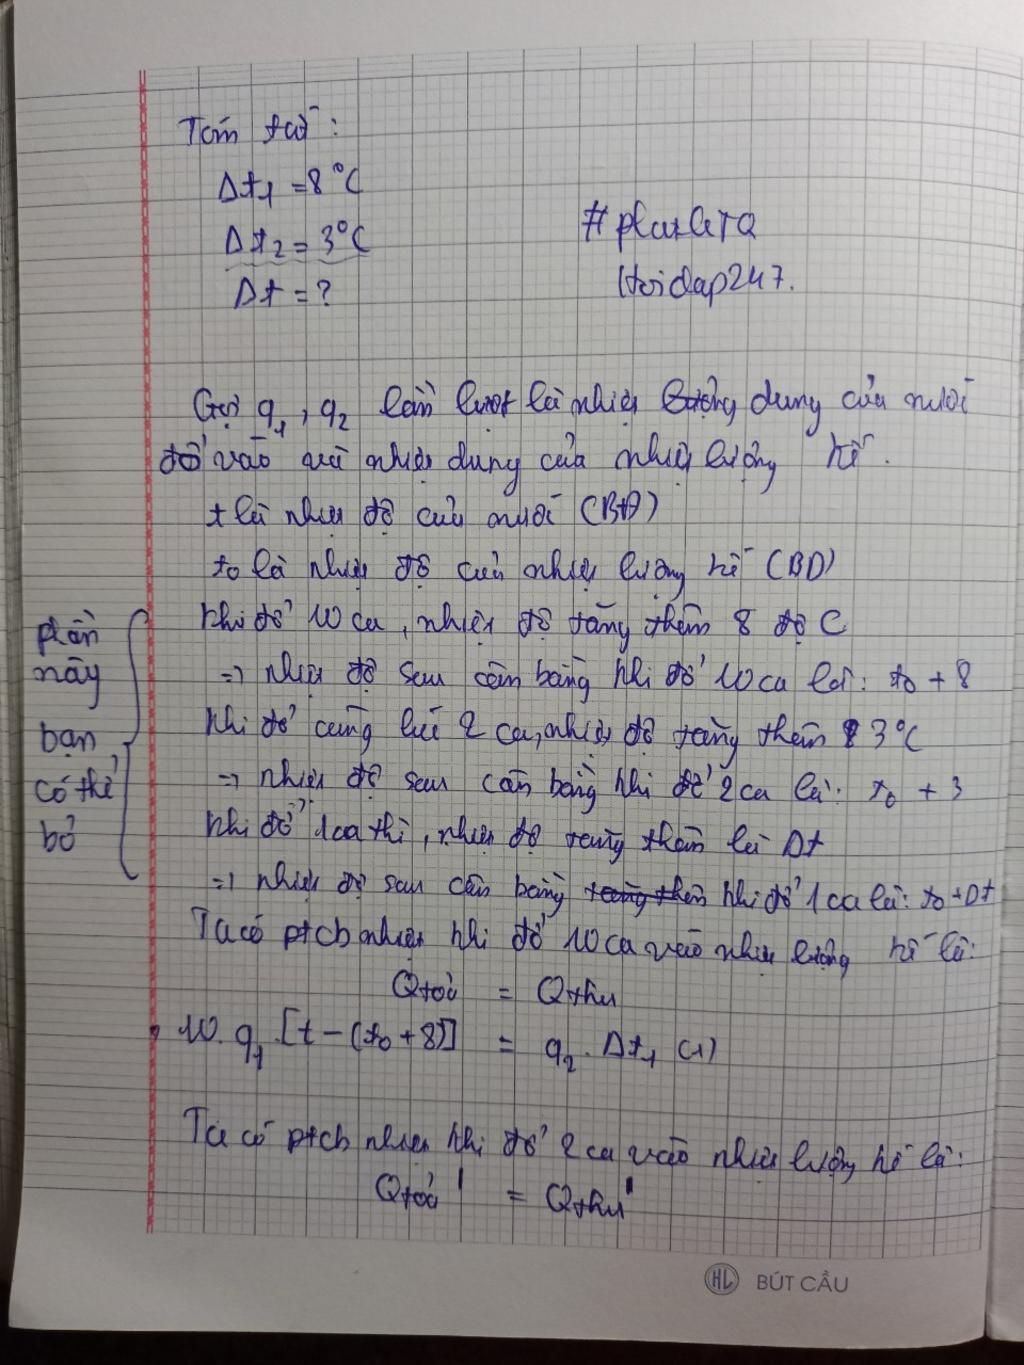 Tóm tắt:
Δt1 = 8°C
Δt2 = 3°C
Δt = ?
#plutGTQ
Hoidap247.
Gọi q1, q2 lần lượt là nhiệt lượng dung của nước
đổ vào và nhiệt dung của nhiệt lượng kế.
t là nhiệt độ của nước (BĐ)
t0 là nhiệt độ của nhiệt lượng kế (BD)
khi đổ 10 ca, nhiệt độ tăng thêm 8 độ C
=> nhiệt độ sau cân bằng khi đổ 10 ca là: t0 + 8
khi đổ cùng lúc 2 ca, nhiệt độ tăng thêm 3°C
=> nhiệt độ sau cân bằng khi đổ 2 ca là: t0 + 3
khi đổ 1 ca thì, nhiệt độ tăng thêm là Δt
=> nhiệt độ sau cân bằng khi đổ 1 ca là: t0 + Δt
phần
này
bạn
có thể
bỏ
Ta có ptcb nhiệt khi đổ 10 ca vào nhiệt lượng kế là:
Qtoả = Qthu
10. q1 . [t - (t0 + 8)] = q2 . Δt1 (1)
Ta có ptcb nhiệt khi đổ 2 ca vào nhiệt lượng kế là:
Qtoả' = Qthu'
HL BÚT CẦU